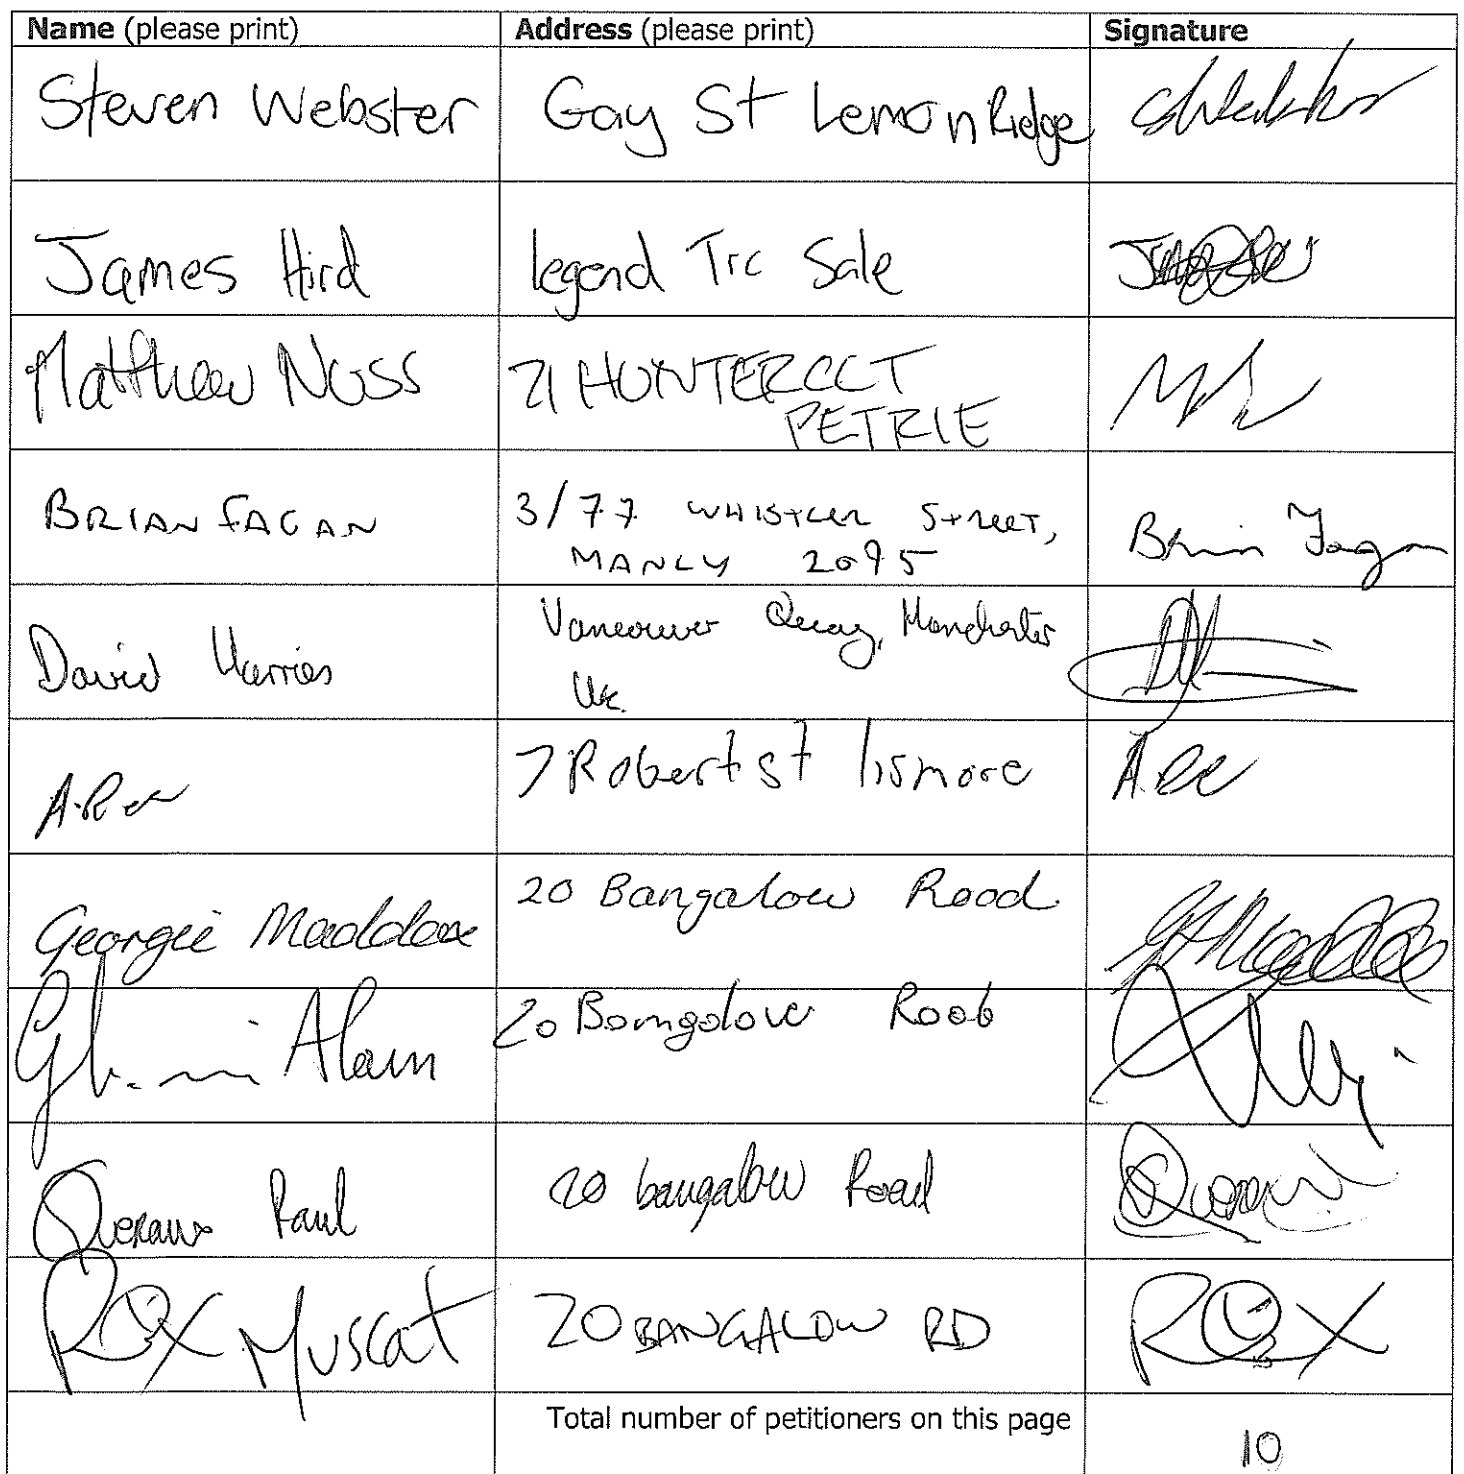 Name (please print) Address (please print) Signature
Steven Webster Gay St Lemon Ridge
James Hird legend Trc Sale
Matthew Noss 21 HUNTER CCT
PETRIE
BRIAN FAGAN 3/77 WHISTLER STREET,
MANLY 2095 Brian Fagan
David Harries Vancouver Quay, Manchester
UK.
7 Robert st lismore
Georgie Maddox 20 Bangalow Road
Alam 20 Bomgolow Roob
Paul 20 bangalow Road
ROX Muscat 20 BANGALOW RD ROX
Total number of petitioners on this page 10